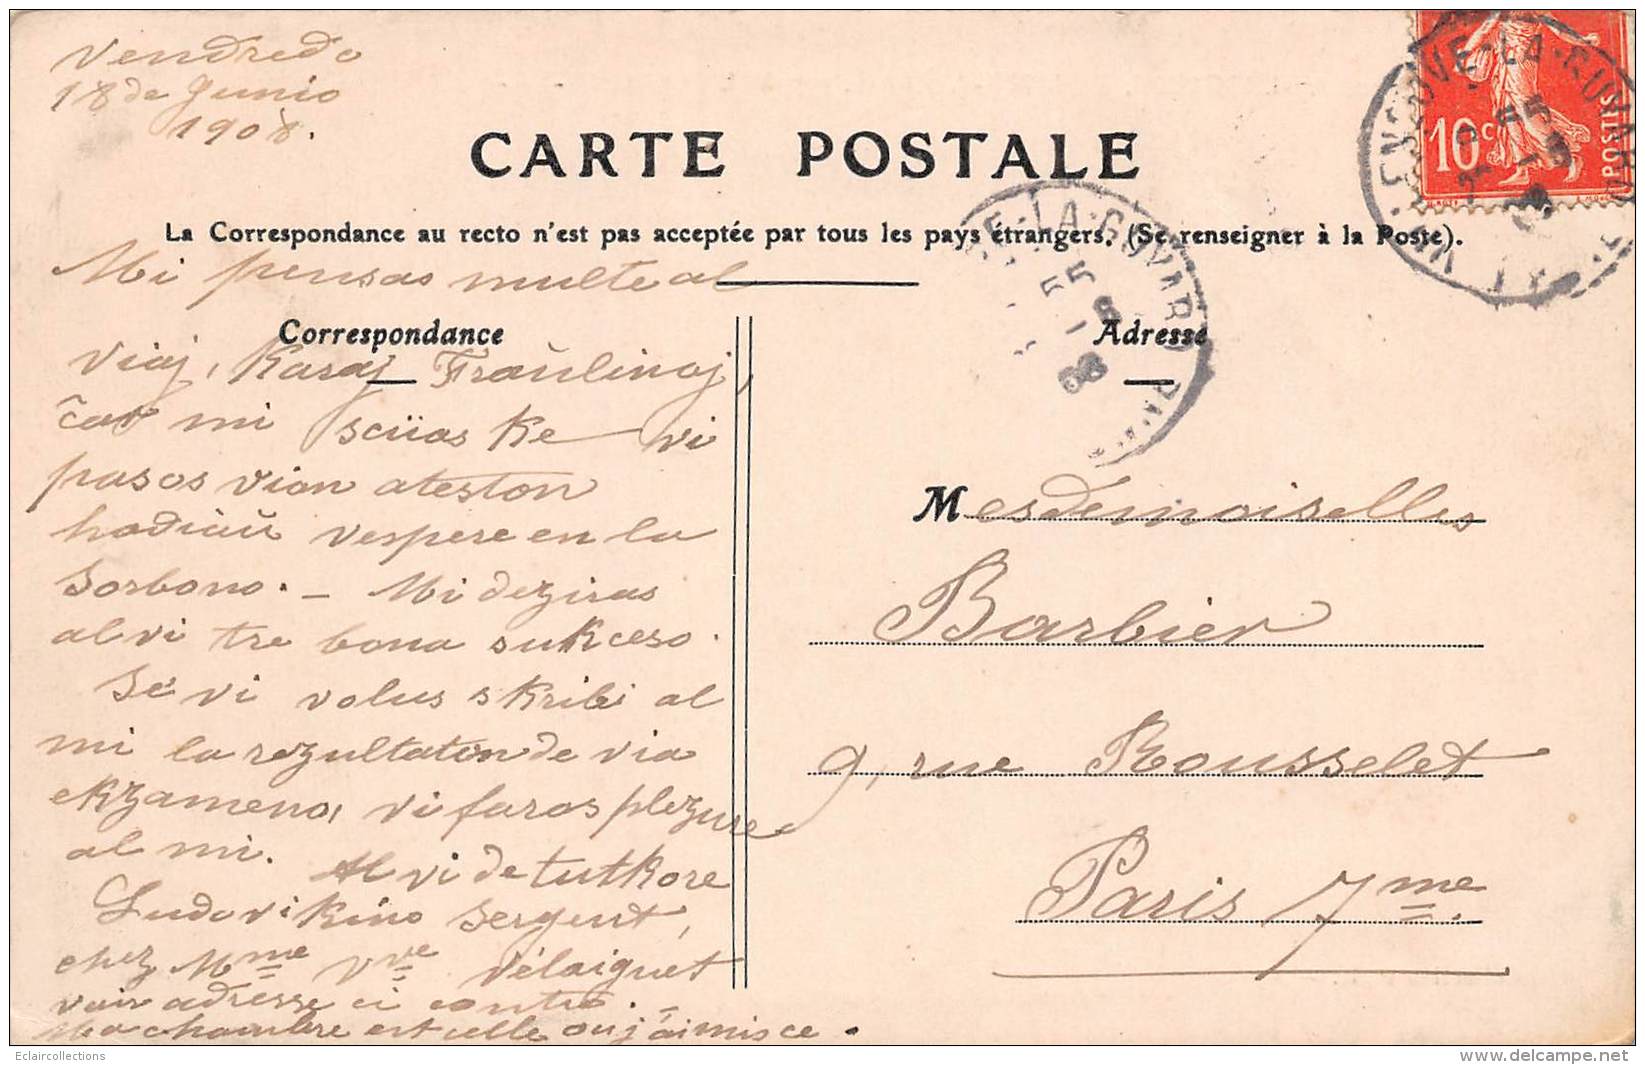 Vendredo
18 de Junio
1908.
CARTE POSTALE
La Correspondance au recto n'est pas acceptée par tous les pays étrangers. (Se renseigner à la Poste).
10c
POSTES
Mi pensas multe al
Correspondance
Adresse
viaj, Karaj Fraŭlinoj,
ĉar mi sciias ke vi
pasos vian ateston
hodiaŭ vespere en la
Sorbono. – Mi deziras
al vi tre bona sukceso.
Se vi volus skribi al
mi la rezultaton de via
ekzameno, vi faros plezure
al mi. Al vi de tutkore
Ludovikino Sergent,
chez Mme Vve Vélaiguet
voir adresse ci contre. –
Ma chambre est celle où j'ai mis ce •
Mesdemoiselles
Barbier
9, rue Rousselet
Paris 7me.
Eclaircollections
www.delcampe.net